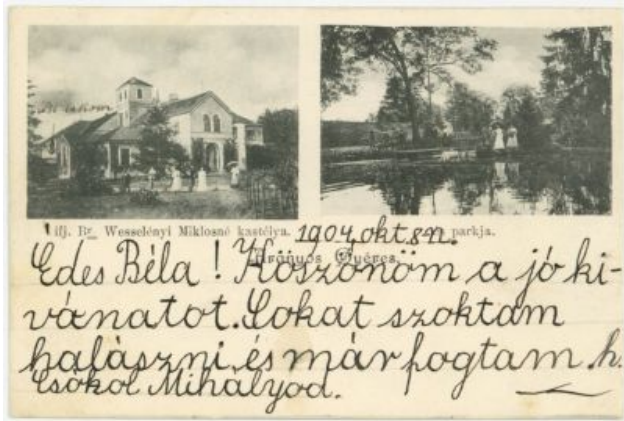 Itt lakom
ifj. Br. Wesselényi Miklosné kastélya. 1904 okt 8n. parkja.
Aranyos Gyéres.
Édes Béla! Köszönöm a jó ki-
vánatot. Sokat szoktam
halászni és már fogtam. h.
Csókol Mihályod.